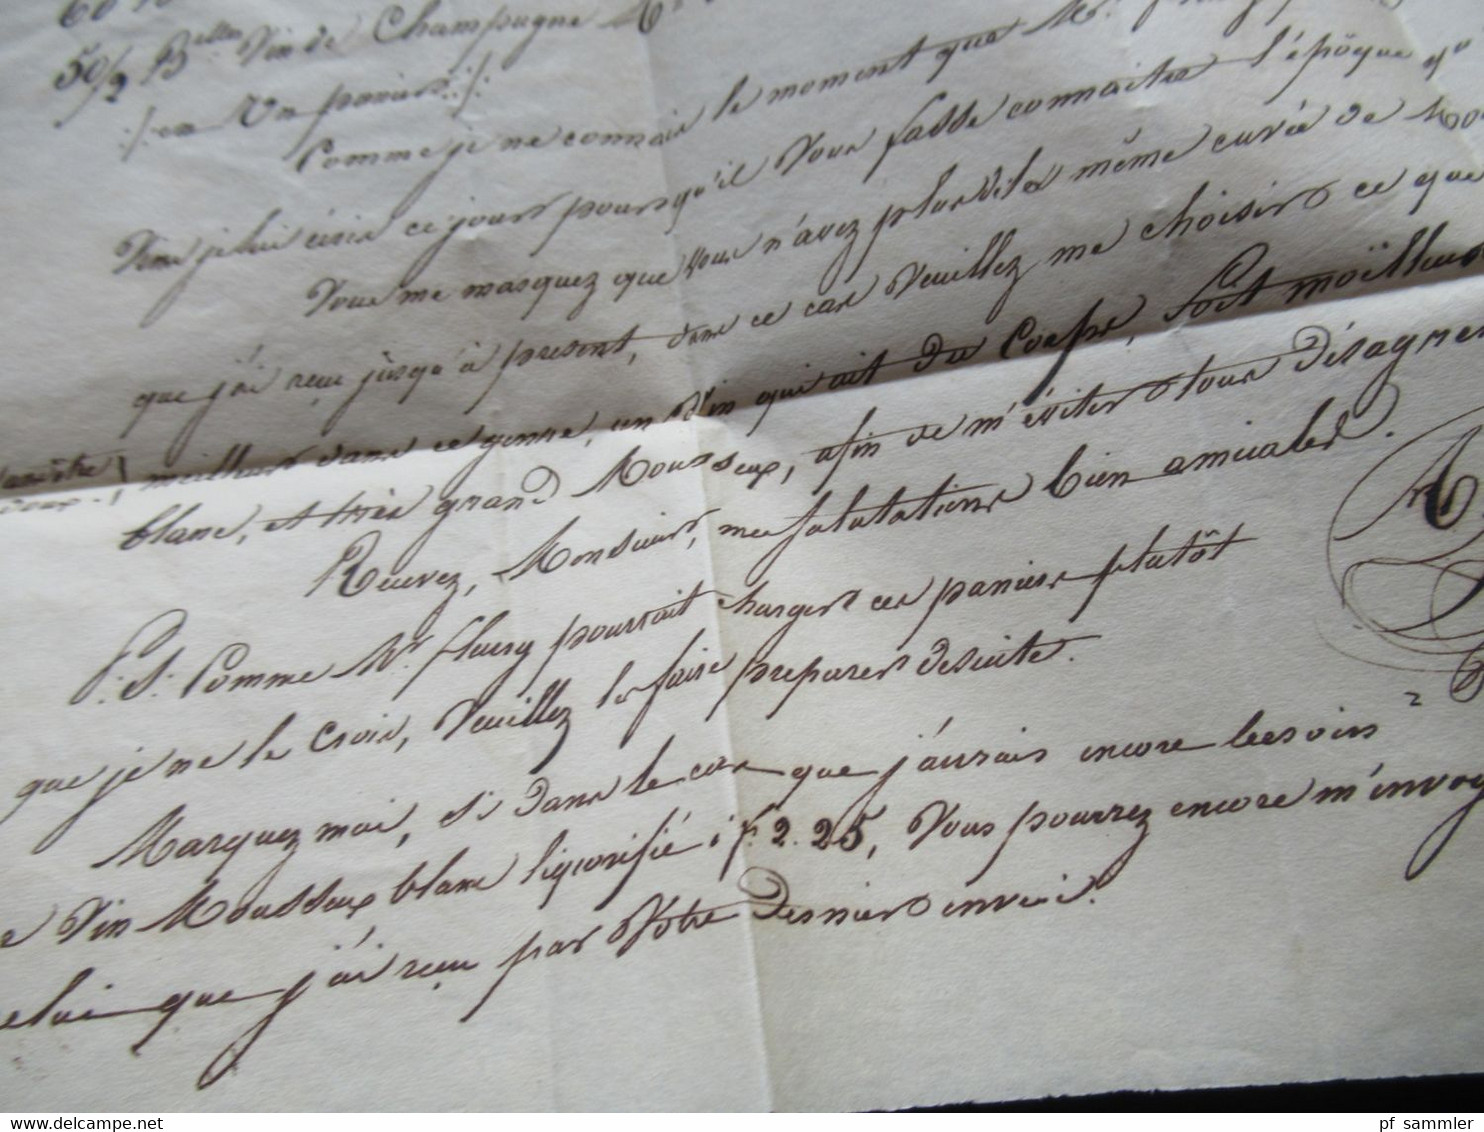 50/2 B.elles Vin de Champagne
en Un panier
Comme je ne connais le moment que Mr.
je lui écris ce jour pour qu'il Vous fasse connaitre l'époque
Vous me marquez que vous n'avez plus de la même cuvée de
que j'ai reçu jusqu'à présent, dans ce cas Veuillez me choisir ce que
meilleur dans ce genre, un Vin qui ait du Corps, soit moëlleux
blanc, et très grand Mousseux, afin de m'éviter tous désagrem
Recevez, Monsieur, mes salutations bien amicales.
P.S. Comme Mr. Fleury pourrait charger ces paniers plutôt
que je ne le crois, Veuillez les faire préparer desuite.
Marquez moi, si dans le cas que j'aurais encore besoin
Vin Mousseux blanc liquorifié à f. 2.25, Vous pourrez encore m'envoy
elui que j'ai reçu par Votre dernier envoi.
pf_sammler